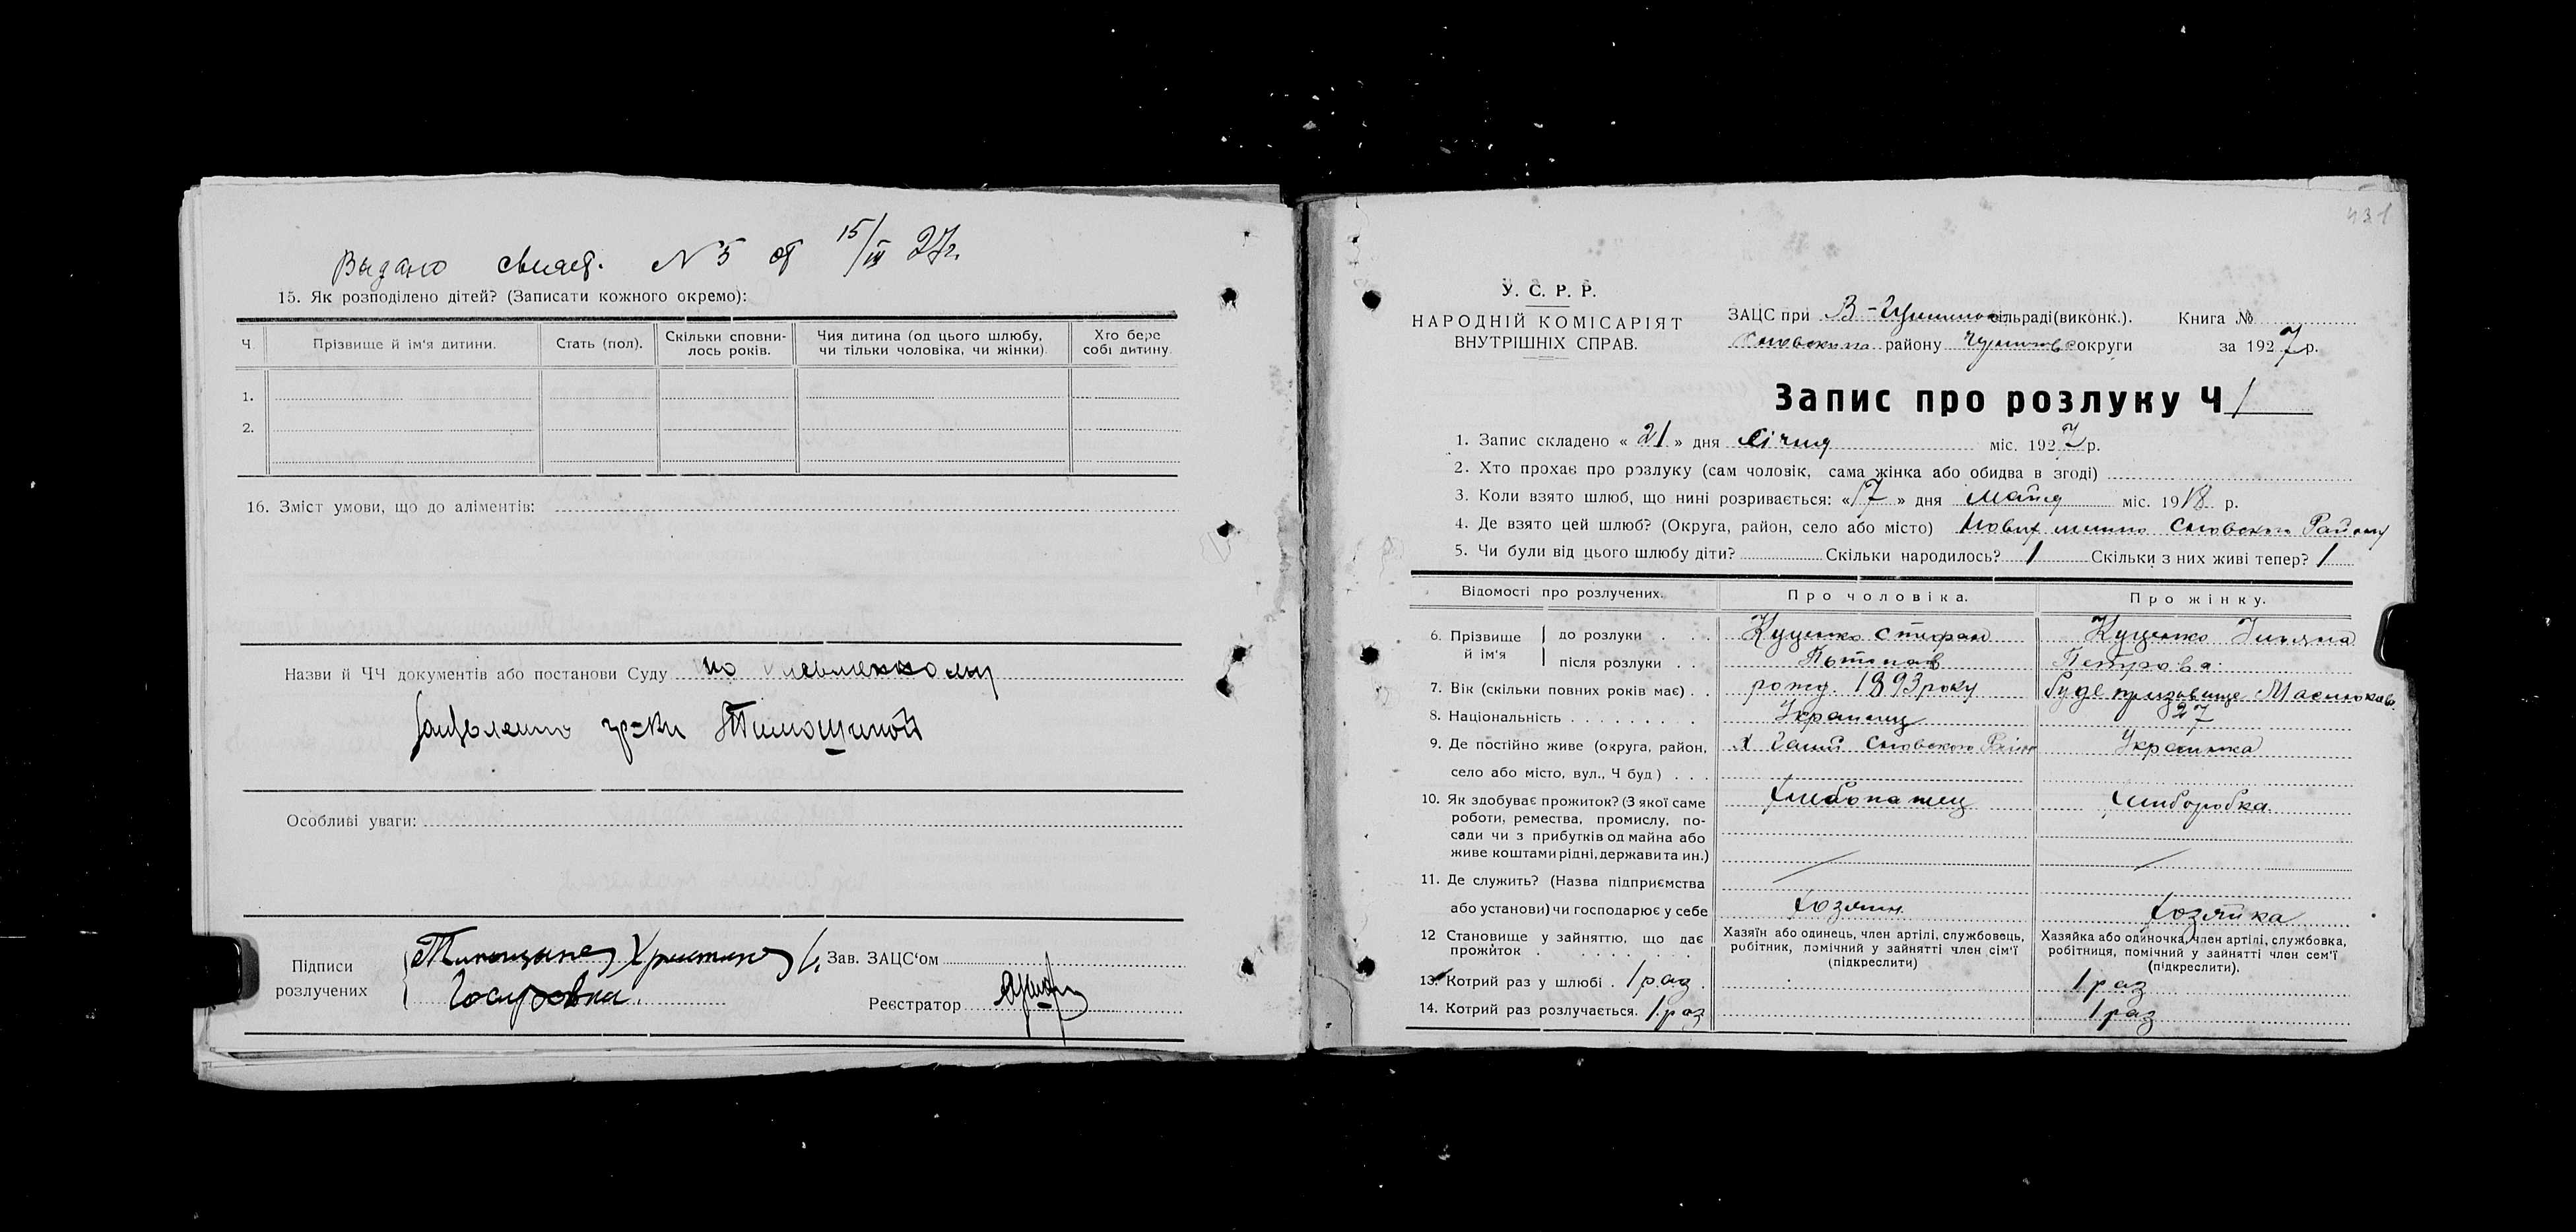 Выдано свидет. N 5 от 15/III 27 г.
15. Як розподілено дітей? (Записати кожного окремо):
Ч. Прізвище й ім'я дитини. Стать (пол). Скільки сповнилось років. Чия дитина (од цього шлюбу, чи тільки чоловіка, чи жінки) Хто бере собі дитину.
1.
2.
16. Зміст умови, що до аліментів:
Назви й ЧЧ документів або постанови Суду по
гр-ки Тимошиной
Особливі уваги:
Підписи розлучених
Зав. ЗАЦС'ом
Реєстратор
431
У. С. Р. Р.
НАРОДНІЙ КОМІСАРІЯТ
ВНУТРІШНІХ СПРАВ.
ЗАЦС при сільраді (виконк.). Книга №
району округи за 1927 р.
Запис про розлуку Ч 1
1. Запис складено « 21 » дня січня міс. 1927 р.
2. Хто прохає про розлуку (сам чоловік, сама жінка або обидва в згоді)
3. Коли взято шлюб, що нині розривається: « 17 » дня мая міс. 1918 р.
4. Де взято цей шлюб? (Округа, район, село або місто) Сновского Району
5. Чи були від цього шлюбу діти? Скільки народилось? 1 Скільки з них живі тепер? 1
Відомості про розлучених. Про чоловіка. Про жінку.
6. Прізвище й ім'я до розлуки . . . Куценко Стефан Куценко
після розлуки . . Петрова
7. Вік (скільки повних років має) . . рожд. 1893 року буде призвище
8. Національність . . . . . . . . . Украинец 27
9. Де постійно живе (округа, район, Сновского Украинка
село або місто, вул., Ч буд) . . .
10. Як здобуває прожиток? (З якої саме хлебопашец хлиборобка
роботи, ремества, промислу, по-
сади чи з прибутків од майна або
живе коштами рідні, держави та ин.)
11. Де служить? (Назва підприємства
або установи) чи господарює у себе хозяин хозяйка
12 Становище у зайняттю, що дає прожиток . . . Хазяїн або одинець, член артілі, службовець, робітник, помічний у зайнятті член сім'ї (підкреслити) Хазяйка або одиночка, член артілі, службовка, робітниця, помічний у зайнятті член сем'ї (підкреслити).
13. Котрий раз у шлюбі . 1 раз . 1 раз
14. Котрий раз розлучається. 1 раз 1 раз